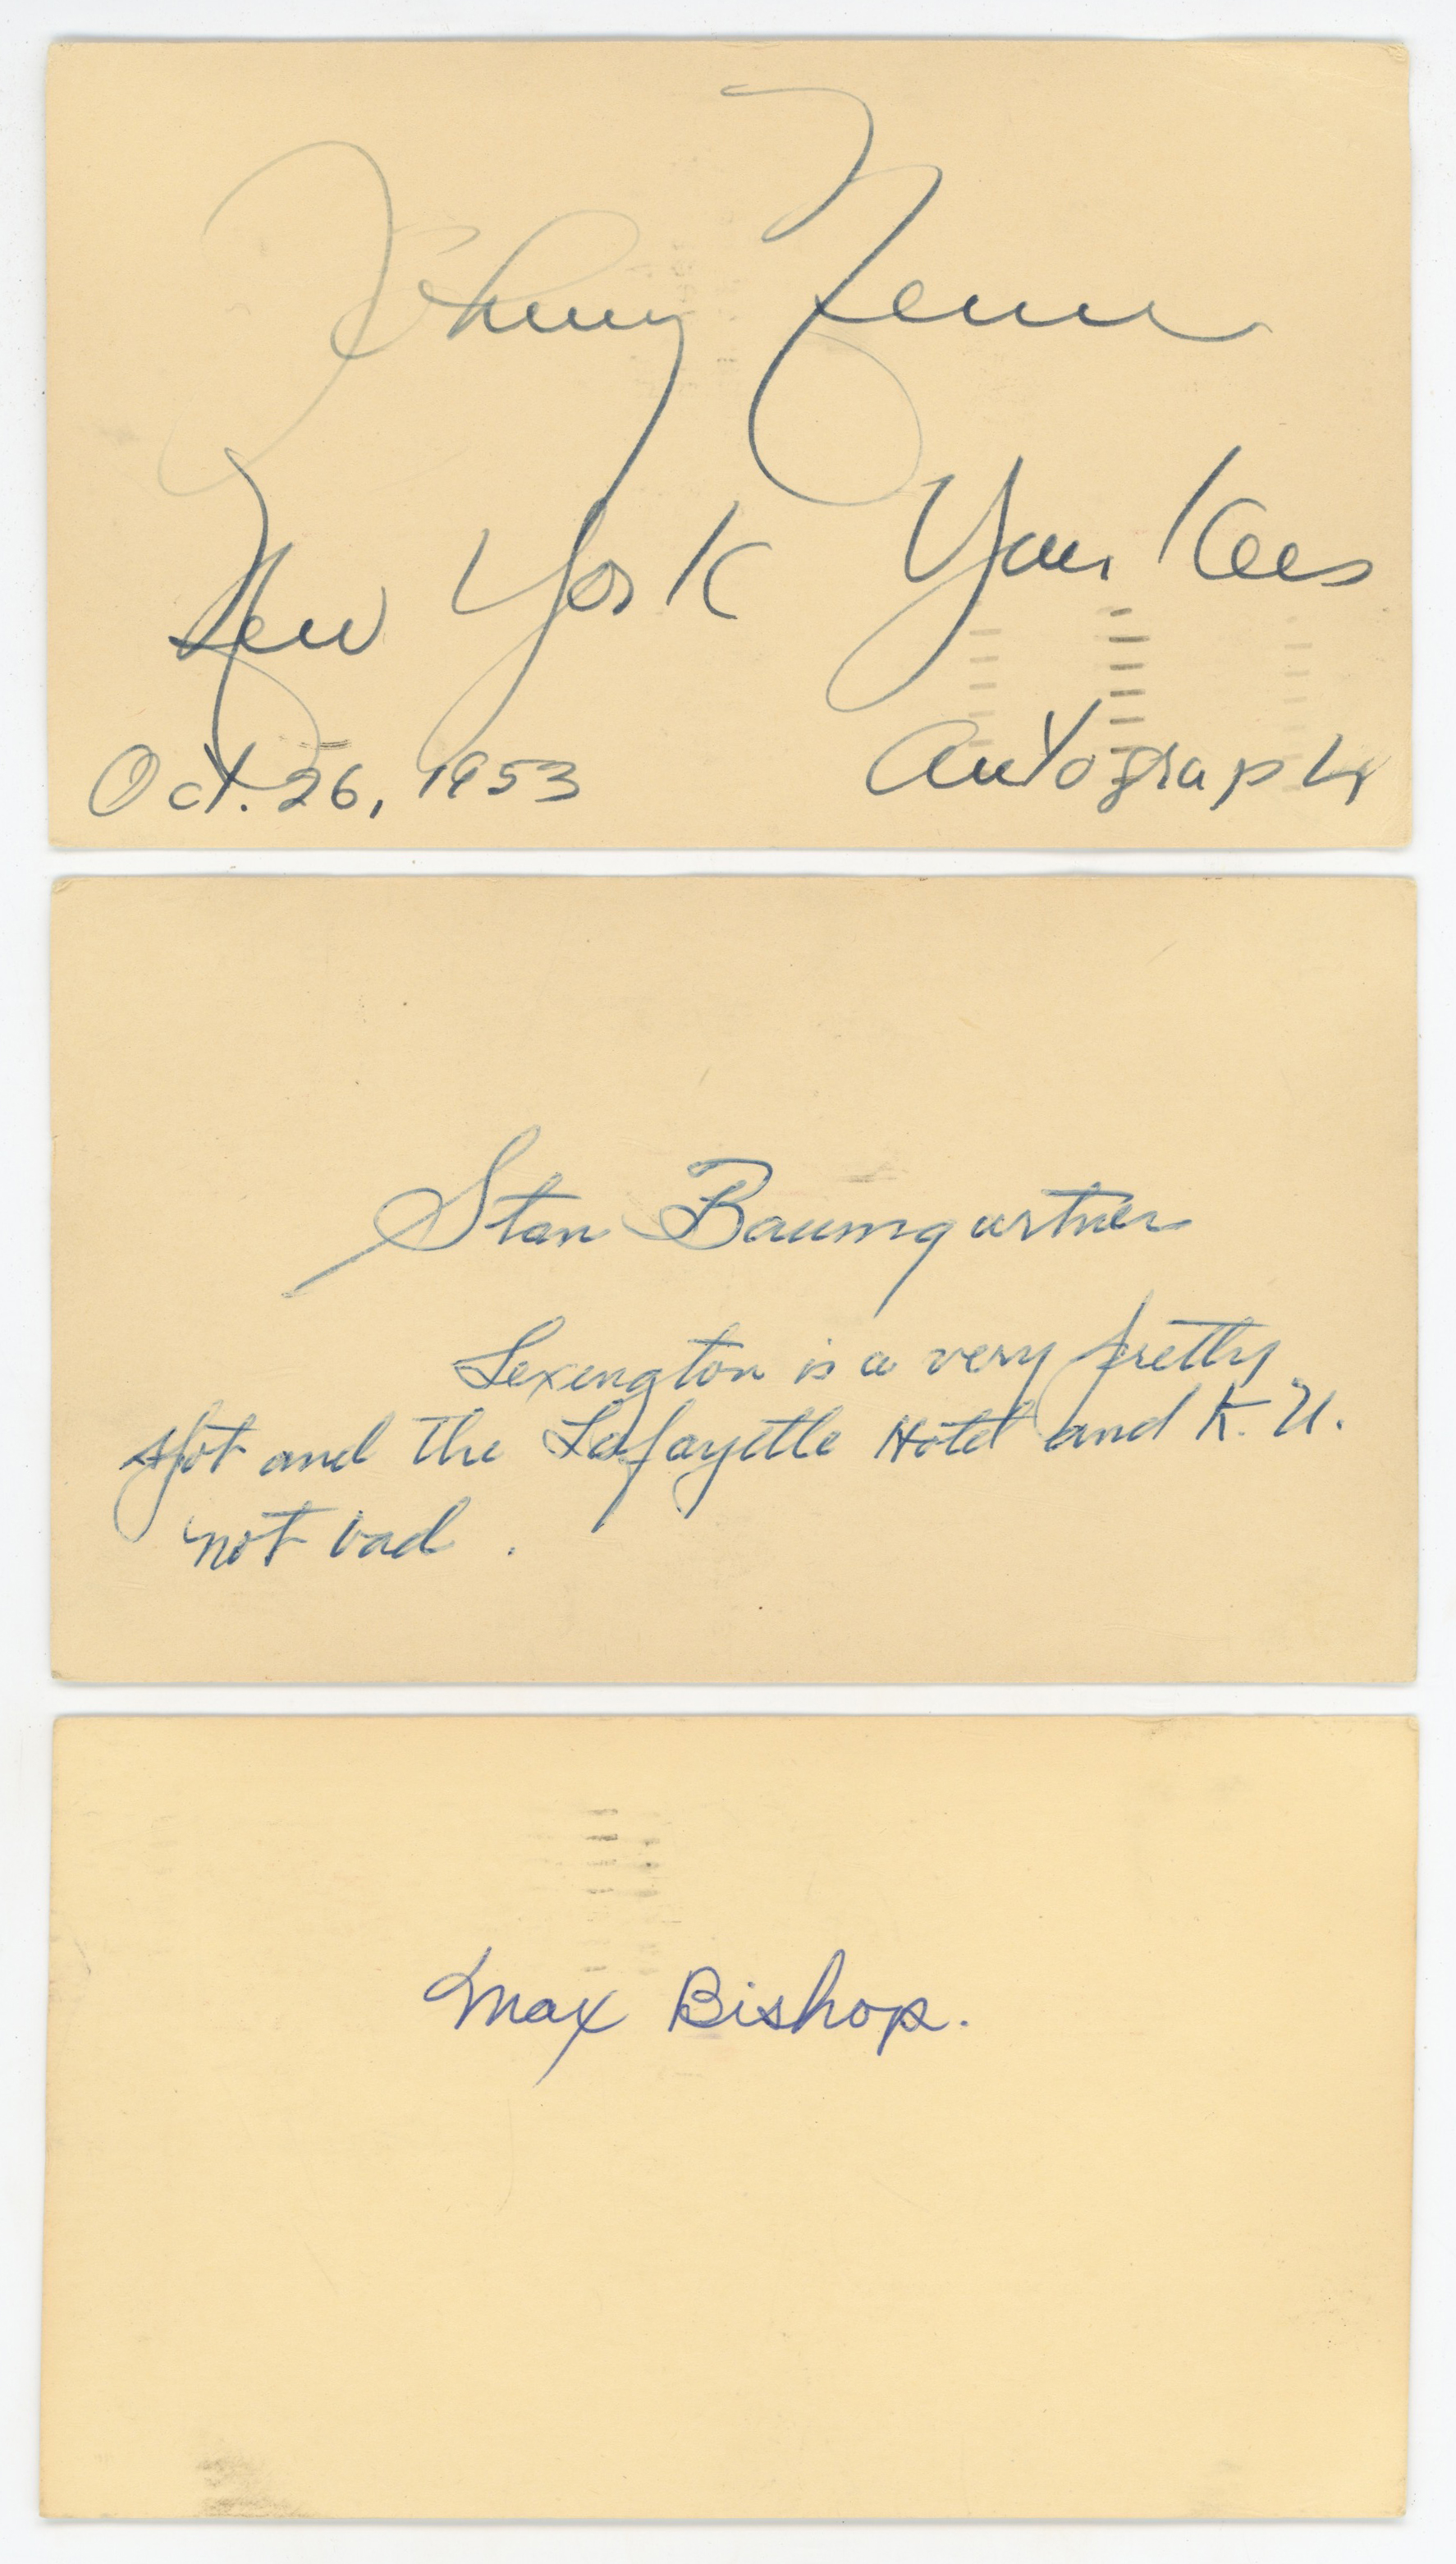 Johnny Neun
New York Yankees
Oct. 26, 1953 Autograph
Stan Baumgartner
Lexington is a very pretty
spot and the Lafayette Hotel and K. U.
not bad .
Max Bishop.